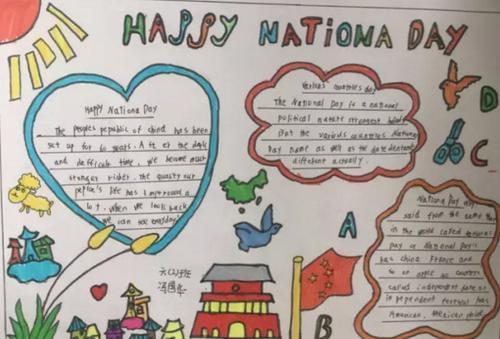 HAPPY NATIONA DAY
Happy Nationa Day
The peoples pepublic of china has been
set up for 60 years. After the dark
and defficute time, we become much
stronger richer. the quality our
people's life has improved a
lot. when we look back
we can see everyday
Various countries day
The National Day is a national
political nature strongest
But the various countries National
Day name as well as the date
different actually.
Nationa Day
said from the same
in the world called national
day or National Day's
has china France and
so on
called independent
independent
American, Mexican
A
B
C
D